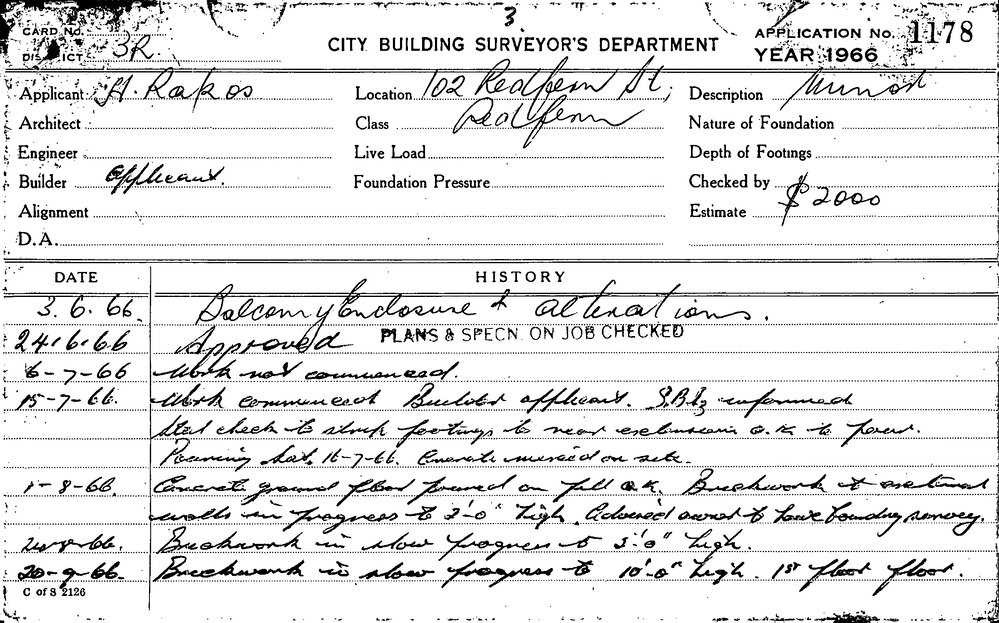 3
CARD No.
DISTRICT 3R
CITY BUILDING SURVEYOR'S DEPARTMENT
APPLICATION No. 1178
YEAR 1966
Applicant H. Rakos
Location 102 Redfern St,
Description Minor
Architect
Class Redfern
Nature of Foundation
Engineer
Live Load
Depth of Footings
Builder applicant.
Foundation Pressure
Checked by
Alignment
Estimate $2000
D.A.
DATE HISTORY
3.6.66. Balcony Enclosure & alterations.
24.6.66 Approved PLANS & SPECN. ON JOB CHECKED
6-7-66 Work not commenced.
15-7-66. Work commenced Builder applicant. informed
Steel check to strip footings to rear extension O.K. to pour.
Pouring Sat. 16-7-66. Concrete mixed on site.
1-8-66. Concrete ground floor poured on fill O.K. Brickwork to external
walls in progress to 3'-0" high. Advised owner to have boundary survey.
Brickwork in slow progress to 3'-0" high.
20-9-66. Brickwork in slow progress to 10'-0" high. 1st floor floor.
C of S 2126